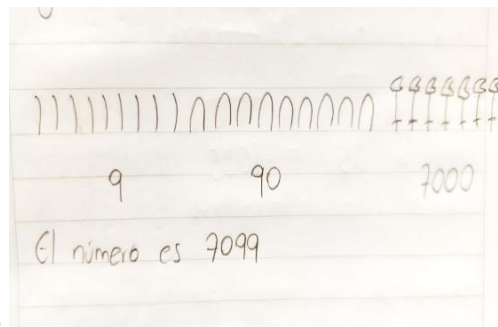 9 90 7000
El número es 7099